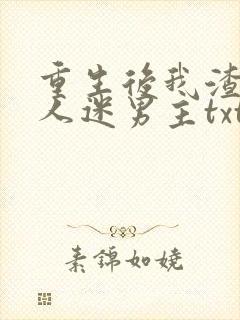 重生後我渣
人迷男主txt
素錦如嬈